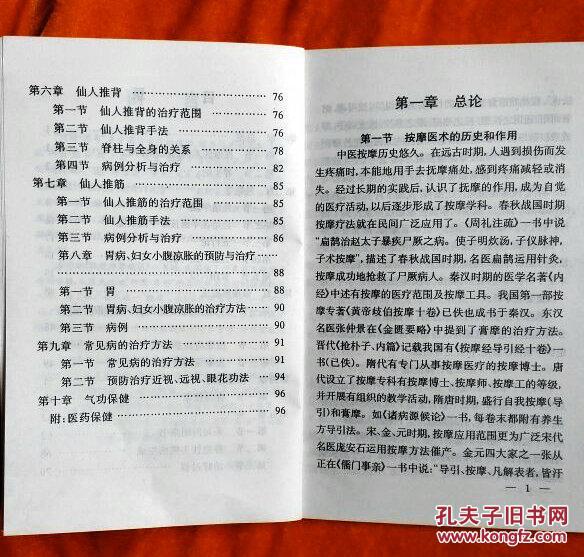 第六章　仙人推背 ………………………… 76
第一节　仙人推背的治疗范围 ………… 76
第二节　仙人推背手法 ………………… 76
第三节　脊柱与全身的关系 …………… 78
第四节　病例分析与治疗 ……………… 82
第七章　仙人推筋 ………………………… 85
第一节　仙人推筋的治疗范围 ………… 85
第二节　仙人推筋手法 ………………… 85
第三节　病例分析与治疗 ……………… 86
第八章　胃病、妇女小腹凉胀的预防与治疗 ……
………………………………………… 88
第一节　胃 ……………………………… 88
第二节　胃病、妇女小腹凉胀的治疗方法 … 90
第三节　病例 …………………………… 90
第九章　常见病的治疗方法 ……………… 91
第一节　常见病的治疗方法 …………… 91
第二节　预防治疗近视、远视、眼花功法 … 94
第十章　气功保健 ………………………… 96
附:医药保健 ……………………………… 96
第一章　总论
第一节　按摩医术的历史和作用
中医按摩历史悠久。在远古时期,人遇到损伤而发
生疼痛时,本能地用手去抚摩痛处,感到疼痛减轻或消
失。经过长期的实践后,认识了抚摩的作用,成为自觉
的医疗活动,以后逐步形成了按摩学科。春秋战国时期
按摩疗法就在民间广泛应用了。《周礼注疏》一书中说
“扁鹊治赵太子暴疾尸厥之病。使子明炊汤,子仪脉神,
子术按摩”,描述了春秋战国时期,名医扁鹊运用针灸、
按摩成功地抢救了尸厥病人。秦汉时期的医学名著《内
经》中述有按摩的医疗范围及按摩工具。我国第一部按
摩专著《黄帝歧伯按摩十卷》已佚也成书于秦汉。东汉
名医张仲景在《金匮要略》中提到了膏摩的治疗方法。
晋代《抢朴子、内篇》记载我国有《按摩经导引经十卷》一
书(已佚)。隋代有专门从事按摩医疗的按摩博士。唐
代设立了按摩专科有按摩博士、按摩师、按摩工的等级,
并开展有组织的教学活动,隋唐时期,盛行自我按摩(导
引)和膏摩。如《诸病源候论》一书,每卷末都附有养生
方导引法。宋、金、元时期,按摩应用范围更为广泛宋代
名医庞安石运用按摩方法催产。金元四大家之一张从
正在《儒门事亲》一书中说:“导引、按摩、凡解表者,皆汗
— 1 —
孔夫子旧书网
www.kongfz.com